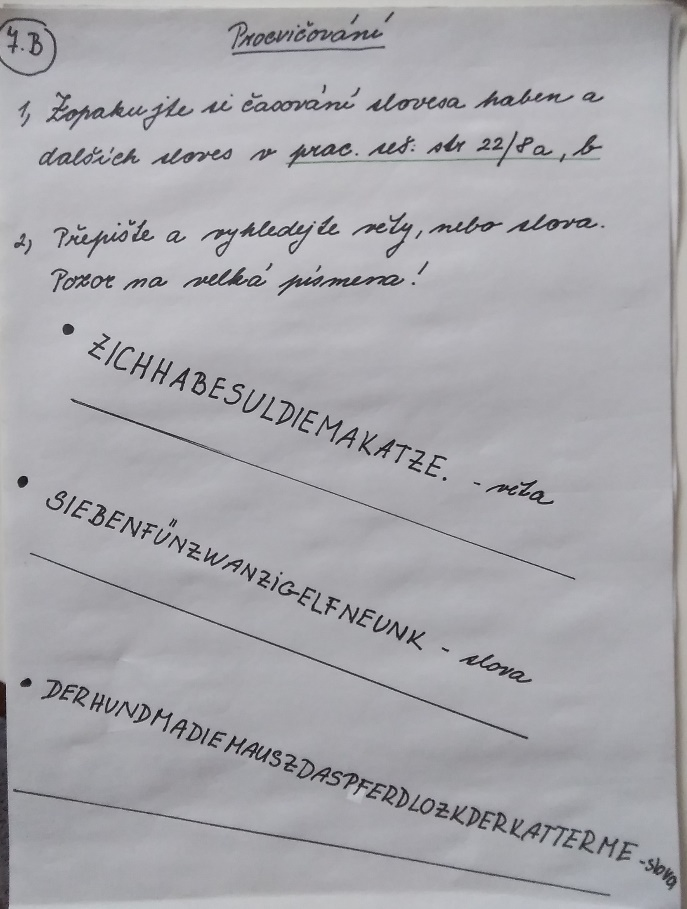 7.B
Procvičování
1, Zopakujte si časování slovesa haben a
dalších sloves v prac. seš. str 22/8a, b
2, Přepište a vyhledejte věty, nebo slova.
Pozor na velká písmena!
• ZICHHABESULDIEMAKATZE. - věta
• SIEBENFÜNZWANZiGELFNEUNK - slova
• DERHUNDMADIEMAUSZDASPFERDLOZKDERKATTERME - slova